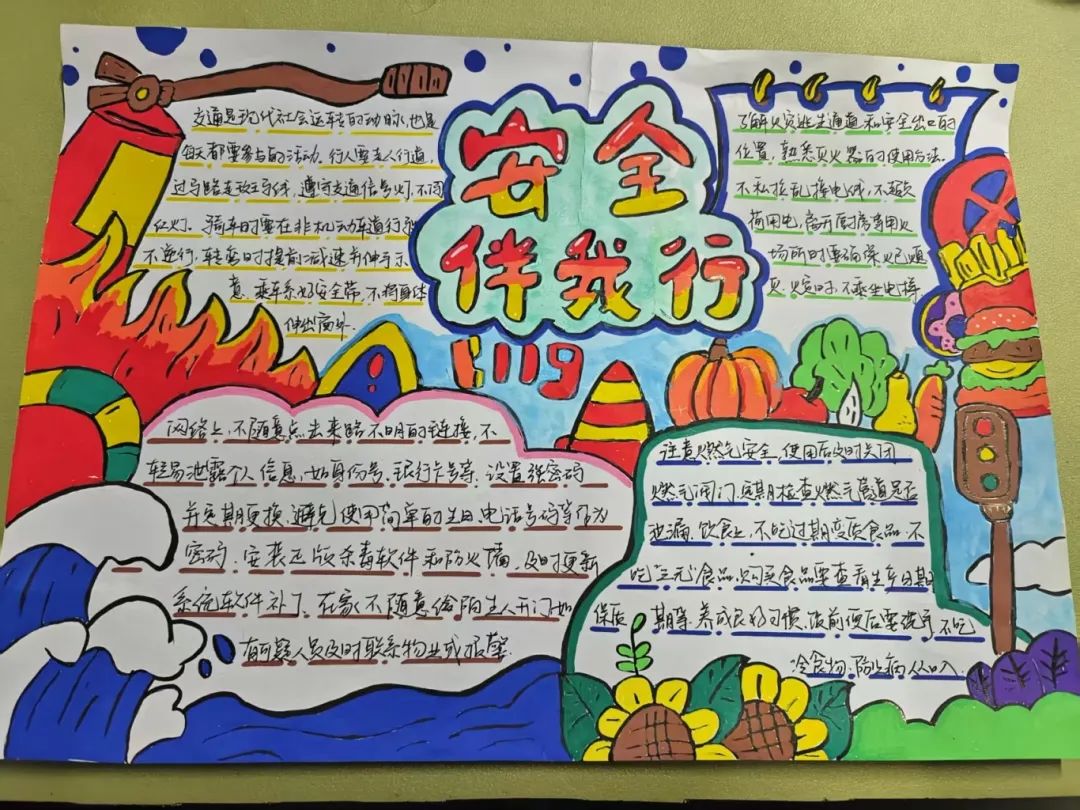 安全
伴我行
119
交通是现代社会运转的动脉,也是
每天都要参与的活动.行人要走人行道,
过马路走斑马线,遵守交通信号灯,不闯
红灯.骑车时要在非机动车道行驶
不逆行,转弯时提前减速并伸手示
意.乘车系好安全带,不将身体
伸出窗外.
了解火灾逃生通道和安全出口的
位置,熟悉灭火器的使用方法.
不私拉乱接电线,不超负
荷用电,离开厨房等用火
场所时要确保火已熄
灭.火灾时,不乘坐电梯
网络上,不随意点击来路不明的链接,不
轻易泄露个人信息,如身份号、银行卡号等,设置强密码
并定期更换,避免使用简单的生日、电话号码等作为
密码,安装正版杀毒软件和防火墙,及时更新
系统软件补丁.在家不随意给陌生人开门如
有可疑人员及时联系物业或报警.
注意燃气安全,使用后及时关闭
燃气阀门,定期检查燃气管道是否
泄漏.饮食上,不吃过期变质食品,不
吃"三无"食品,购买食品要查看生产日期
保质期等.养成良好习惯,饭前便后要洗手不吃
冷食物.防止病从口入.